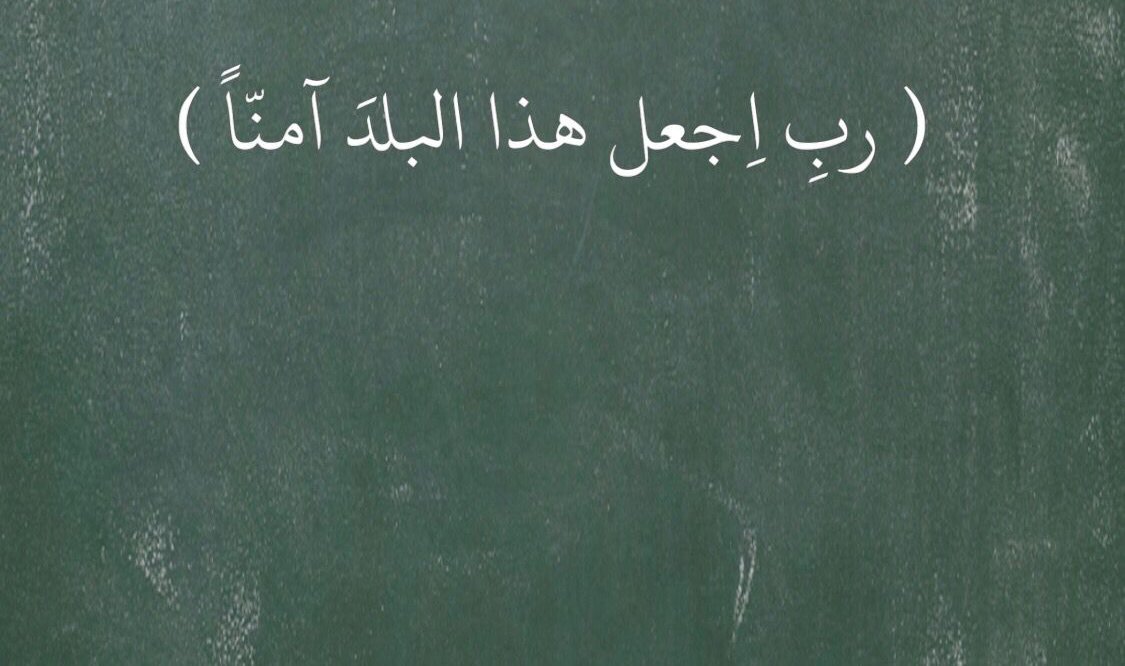 ( ربِ اِجعل هذا البلدَ آمنّاً )